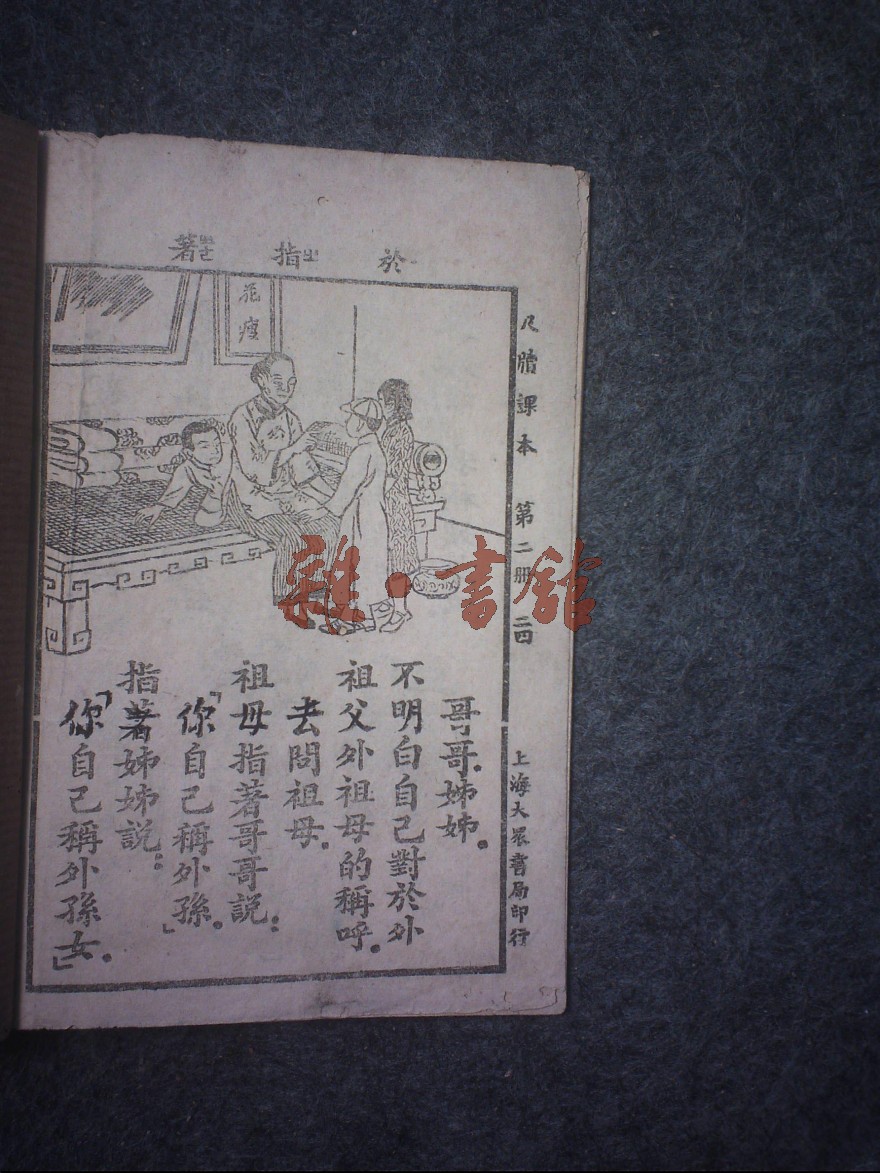 於 指 著
花瘦
哥哥姊姊。
不明白自己對於外
祖父外祖母的稱呼。
去問祖母。
祖母指著哥哥說：
「你自己稱外孫」。
指著姊姊說：
「你自己稱外孫女」。
尺牘課本 第二册 二四
上海大眾書局印行
雜·書館